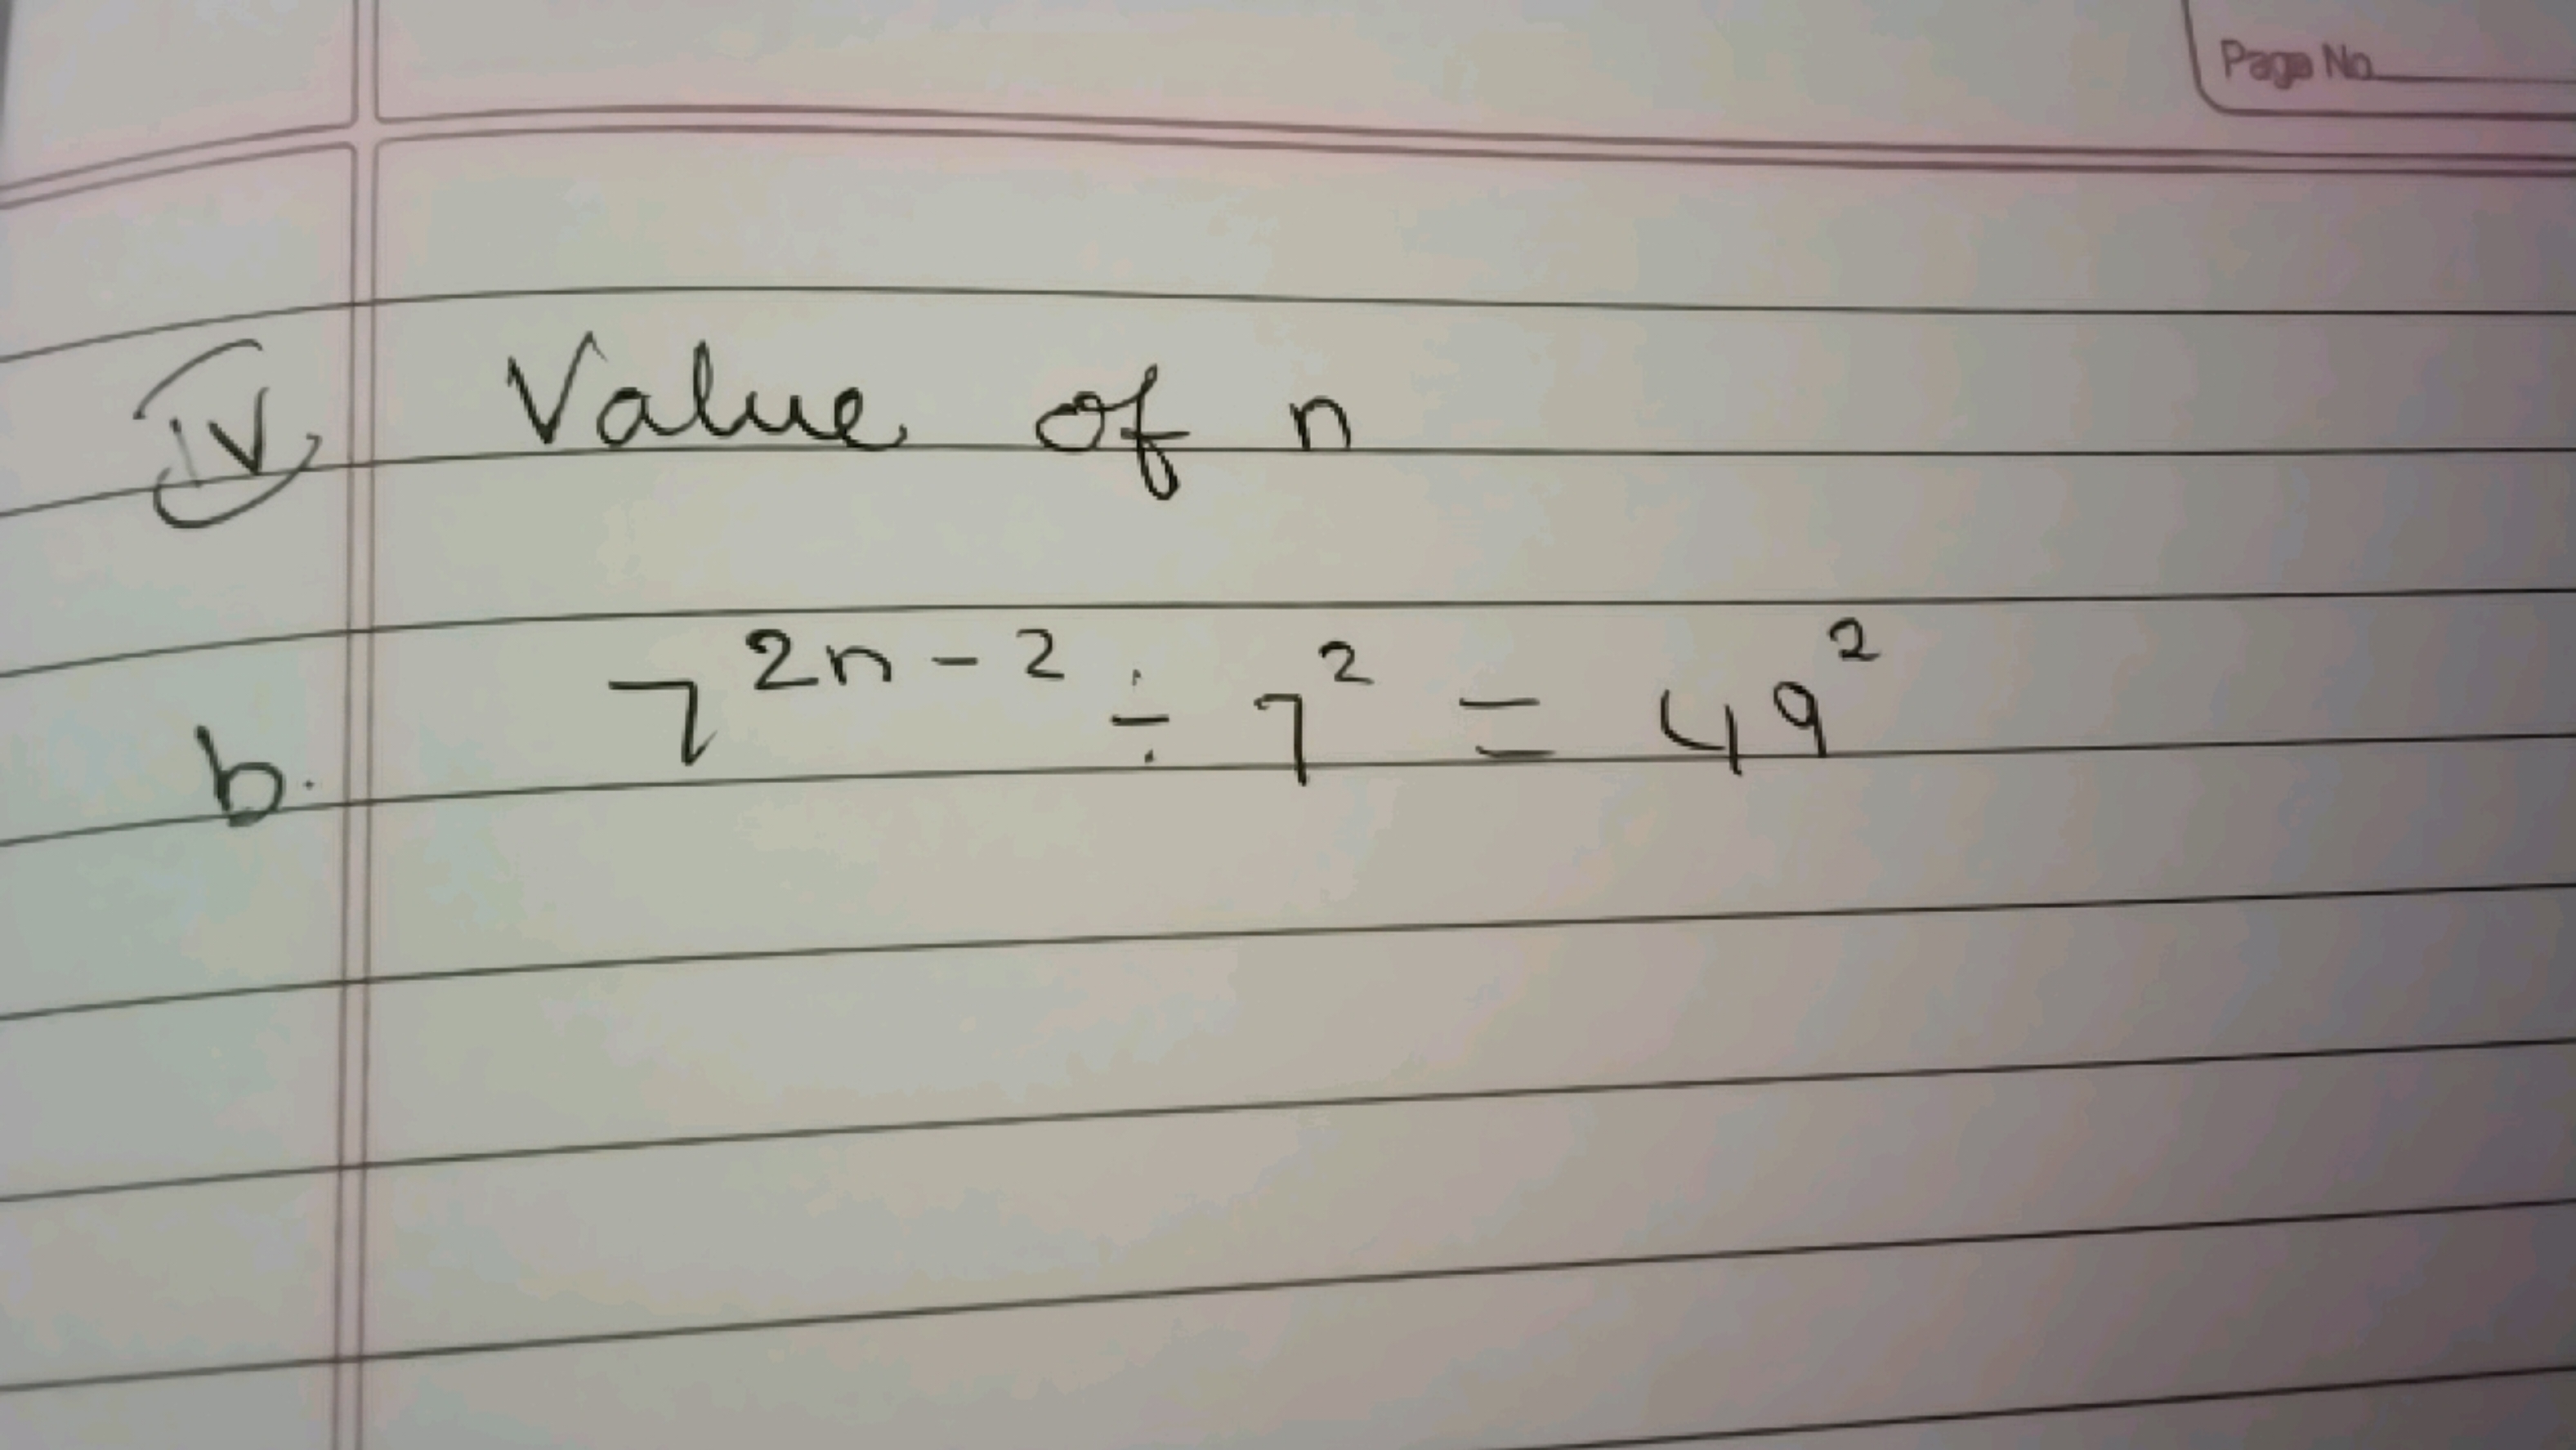 Page No
iv Value of n
b. 7²ⁿ⁻² ÷ 7² = 49²